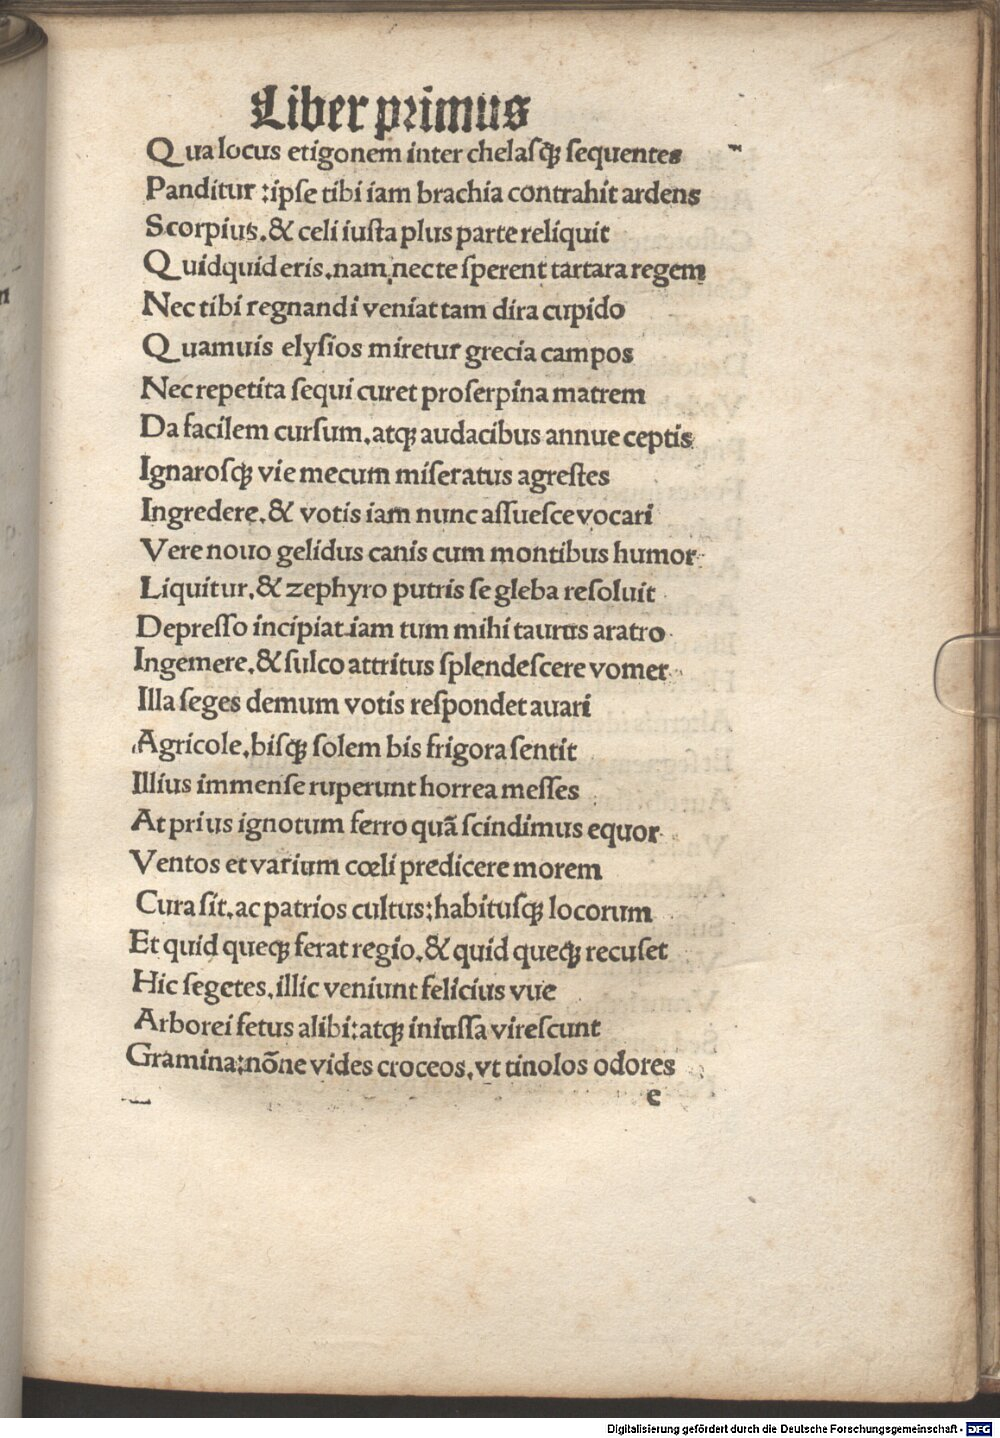 Liber primus
Qua locus etigonem inter chelasqꝫ sequentes
Panditur :ipse tibi iam brachia contrahit ardens
Scorpius.& celi iusta plus parte reliquit
Quidquid eris.nam nec te sperent tartara regem
Nec tibi regnandi veniat tam dira cupido
Quamuis elysios miretur grecia campos
Nec repetita sequi curet proserpina matrem
Da facilem cursum.atqꝫ audacibus annue ceptis
Ignarosqꝫ vie mecum miseratus agrestes
Ingredere.& votis iam nunc assuesce vocari
Vere nouo gelidus canis cum montibus humor
Liquitur.& zephyro putris se gleba resoluit
Depresso incipiat iam tum mihi taurus aratro
Ingemere.& sulco attritus splendescere vomer
Illa seges demum votis respondet auari
Agricole.bisqꝫ solem bis frigora sentit
Illius immense ruperunt horrea messes
At prius ignotum ferro quā scindimus equor
Ventos et varium cœli predicere morem
Cura sit.ac patrios cultus:habitusqꝫ locorum
Et quid queqꝫ ferat regio.& quid queqꝫ recuset
Hic segetes.illic veniunt felicius vue
Arborei fetus alibi:atqꝫ iniussa virescunt
Gramina:nōne vides croceos.vt tinolos odores
e
Digitalisierung gefördert durch die Deutsche Forschungsgemeinschaft - DFG